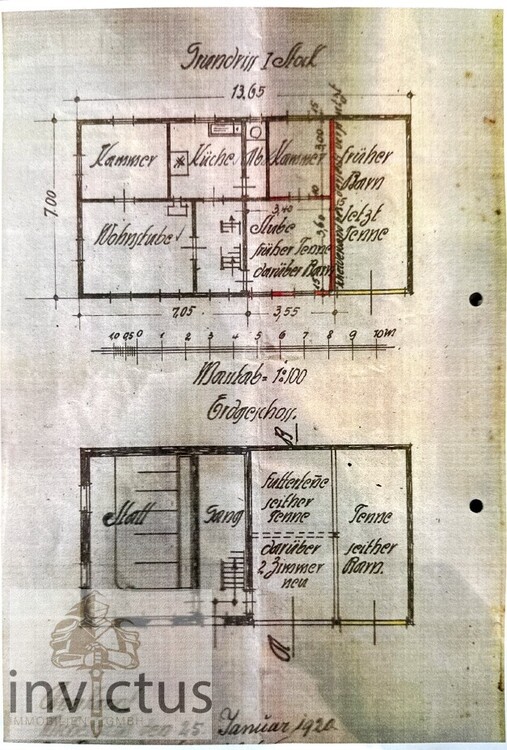 Grundriss I Stock
13,65
7,00
Kammer
Küche
Ab.
Kammer
3,00
15
früher
Barn
Jetzt
Tenne
Wohnstube
3,40
10
Stube
früher Tenne
darüber Barn
3,60
15
7,05
3,55
10 05 0 1 2 3 4 5 6 7 8 9 10 m
Mastab = 1:100
Erdgeschoss.
B
Stall
Gang
Futtertenne
seither
Tenne
darüber
2 Zimmer
neu
Tenne
seither
Barn.
A
invictus
IMMOBILIEN GMBH
den 25. Januar 1920